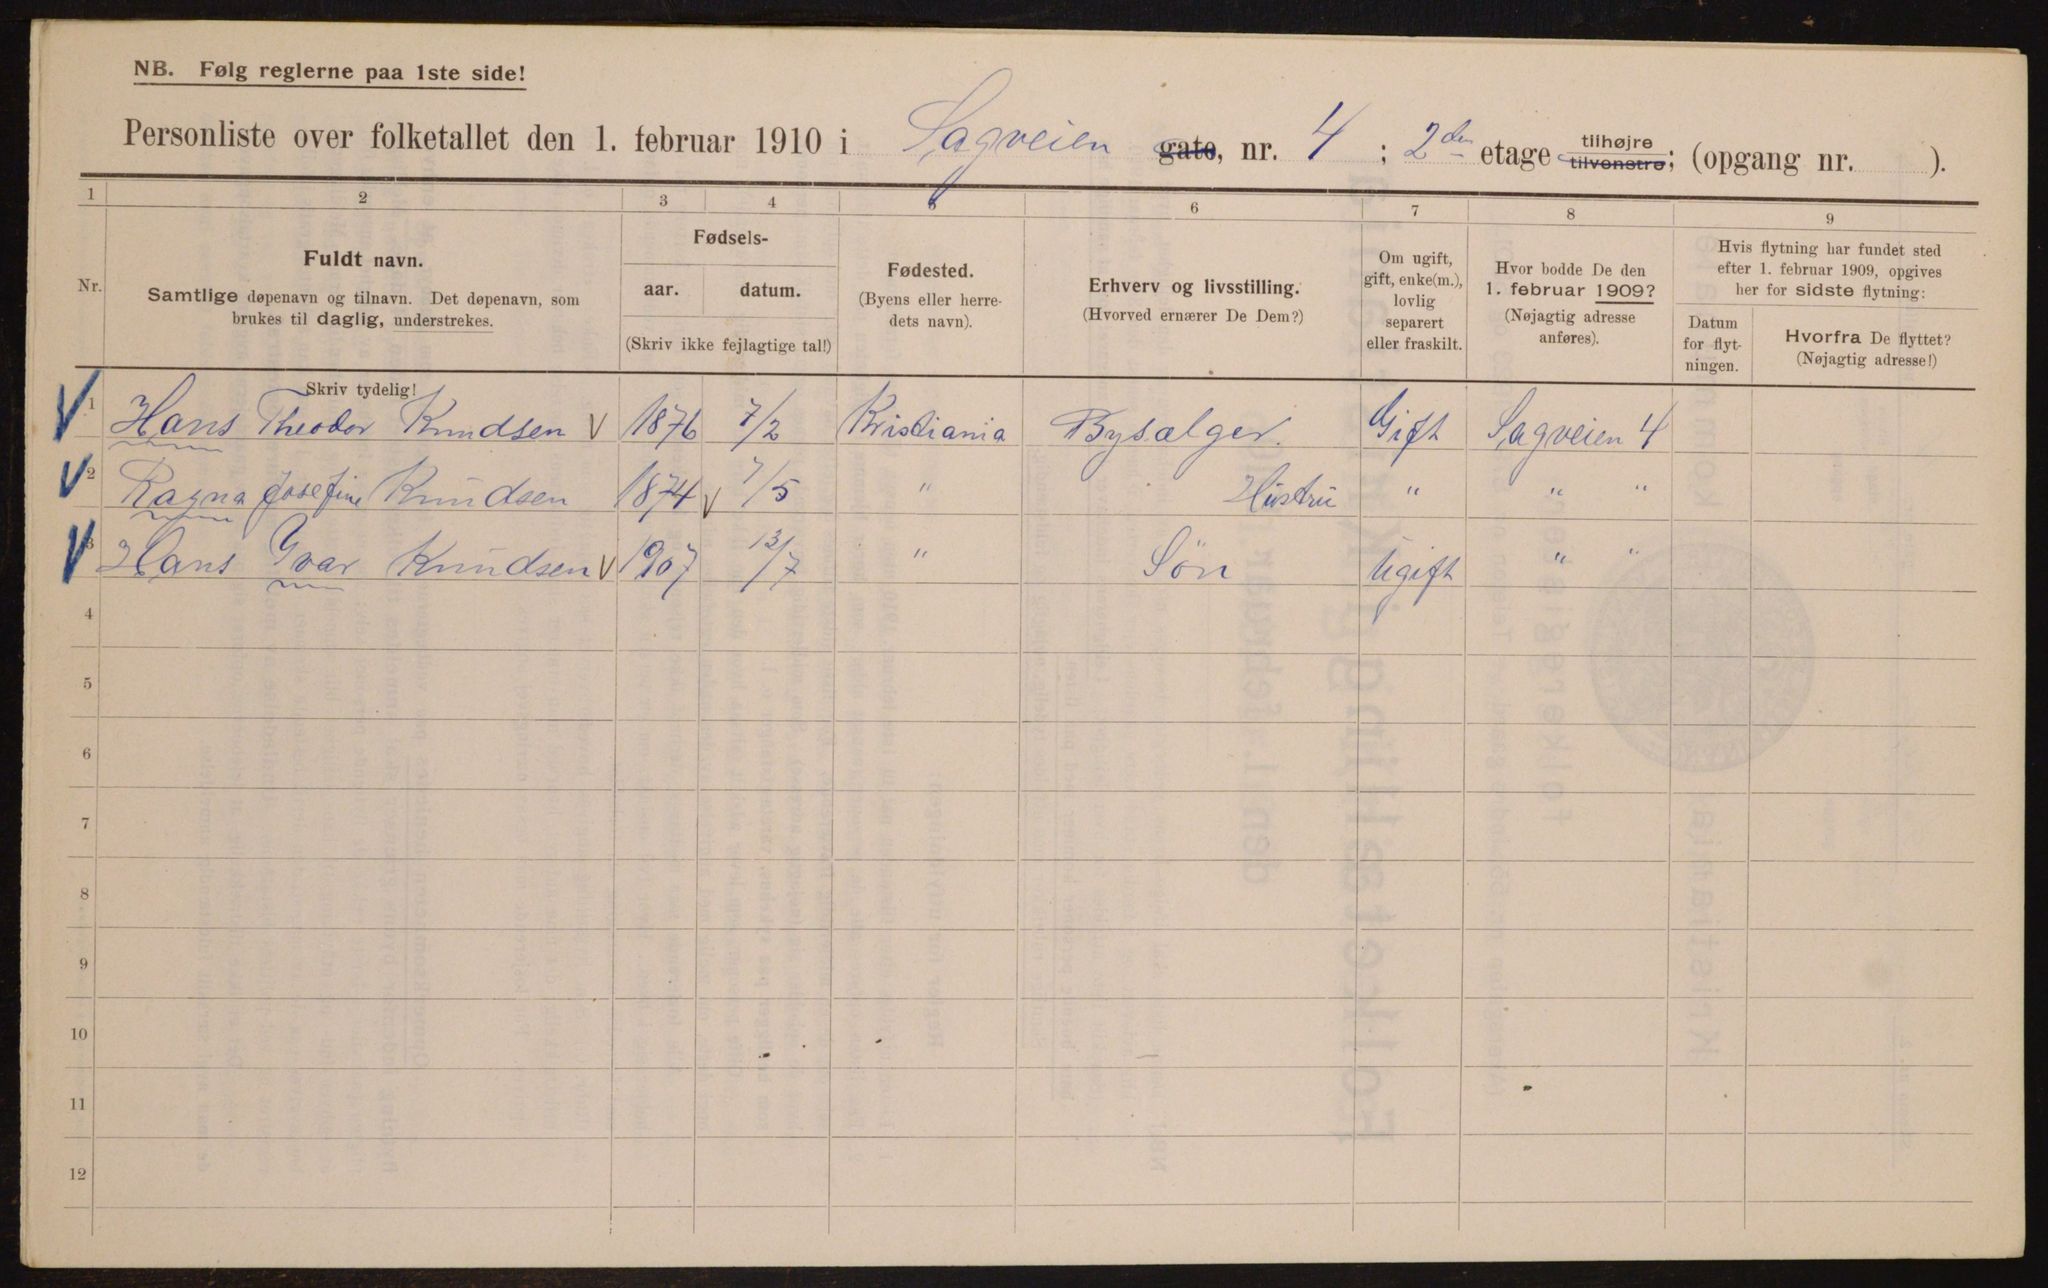 NB. Følg reglerne paa 1ste side!
Personliste over folketallet den 1. februar 1910 i Sagveien gate, nr. 4 ; 2den etage tilhøjre tilvenstre; (opgang nr. ).
1 2 3 4 5 6 7 8 9
Nr.
Fuldt navn.
Samtlige døpenavn og tilnavn. Det døpenavn, som
brukes til daglig, understrekes.
Skriv tydelig!
Fødsels-
aar. datum.
(Skriv ikke fejlagtige tal!)
Fødested.
(Byens eller herre-
dets navn).
Erhverv og livsstilling.
(Hvorved ernærer De Dem?)
Om ugift,
gift, enke(m.),
lovlig
separert
eller fraskilt.
Hvor bodde De den
1. februar 1909?
(Nøjagtig adresse
anføres).
Hvis flytning har fundet sted
efter 1. februar 1909, opgives
her for sidste flytning:
Datum
for flyt-
ningen.
Hvorfra De flyttet?
(Nøjagtig adresse!)
1 Hans Theodor Knudsen 1876 7/2 Kristiania Bysælger. Gift Sagveien 4
2 Ragna Josefine Knudsen 1874 7/5 " Hustru " " "
3 Hans Yvar Knudsen 1907 13/7 " Søn Ugift " "
4
5
6
7
8
9
10
11
12